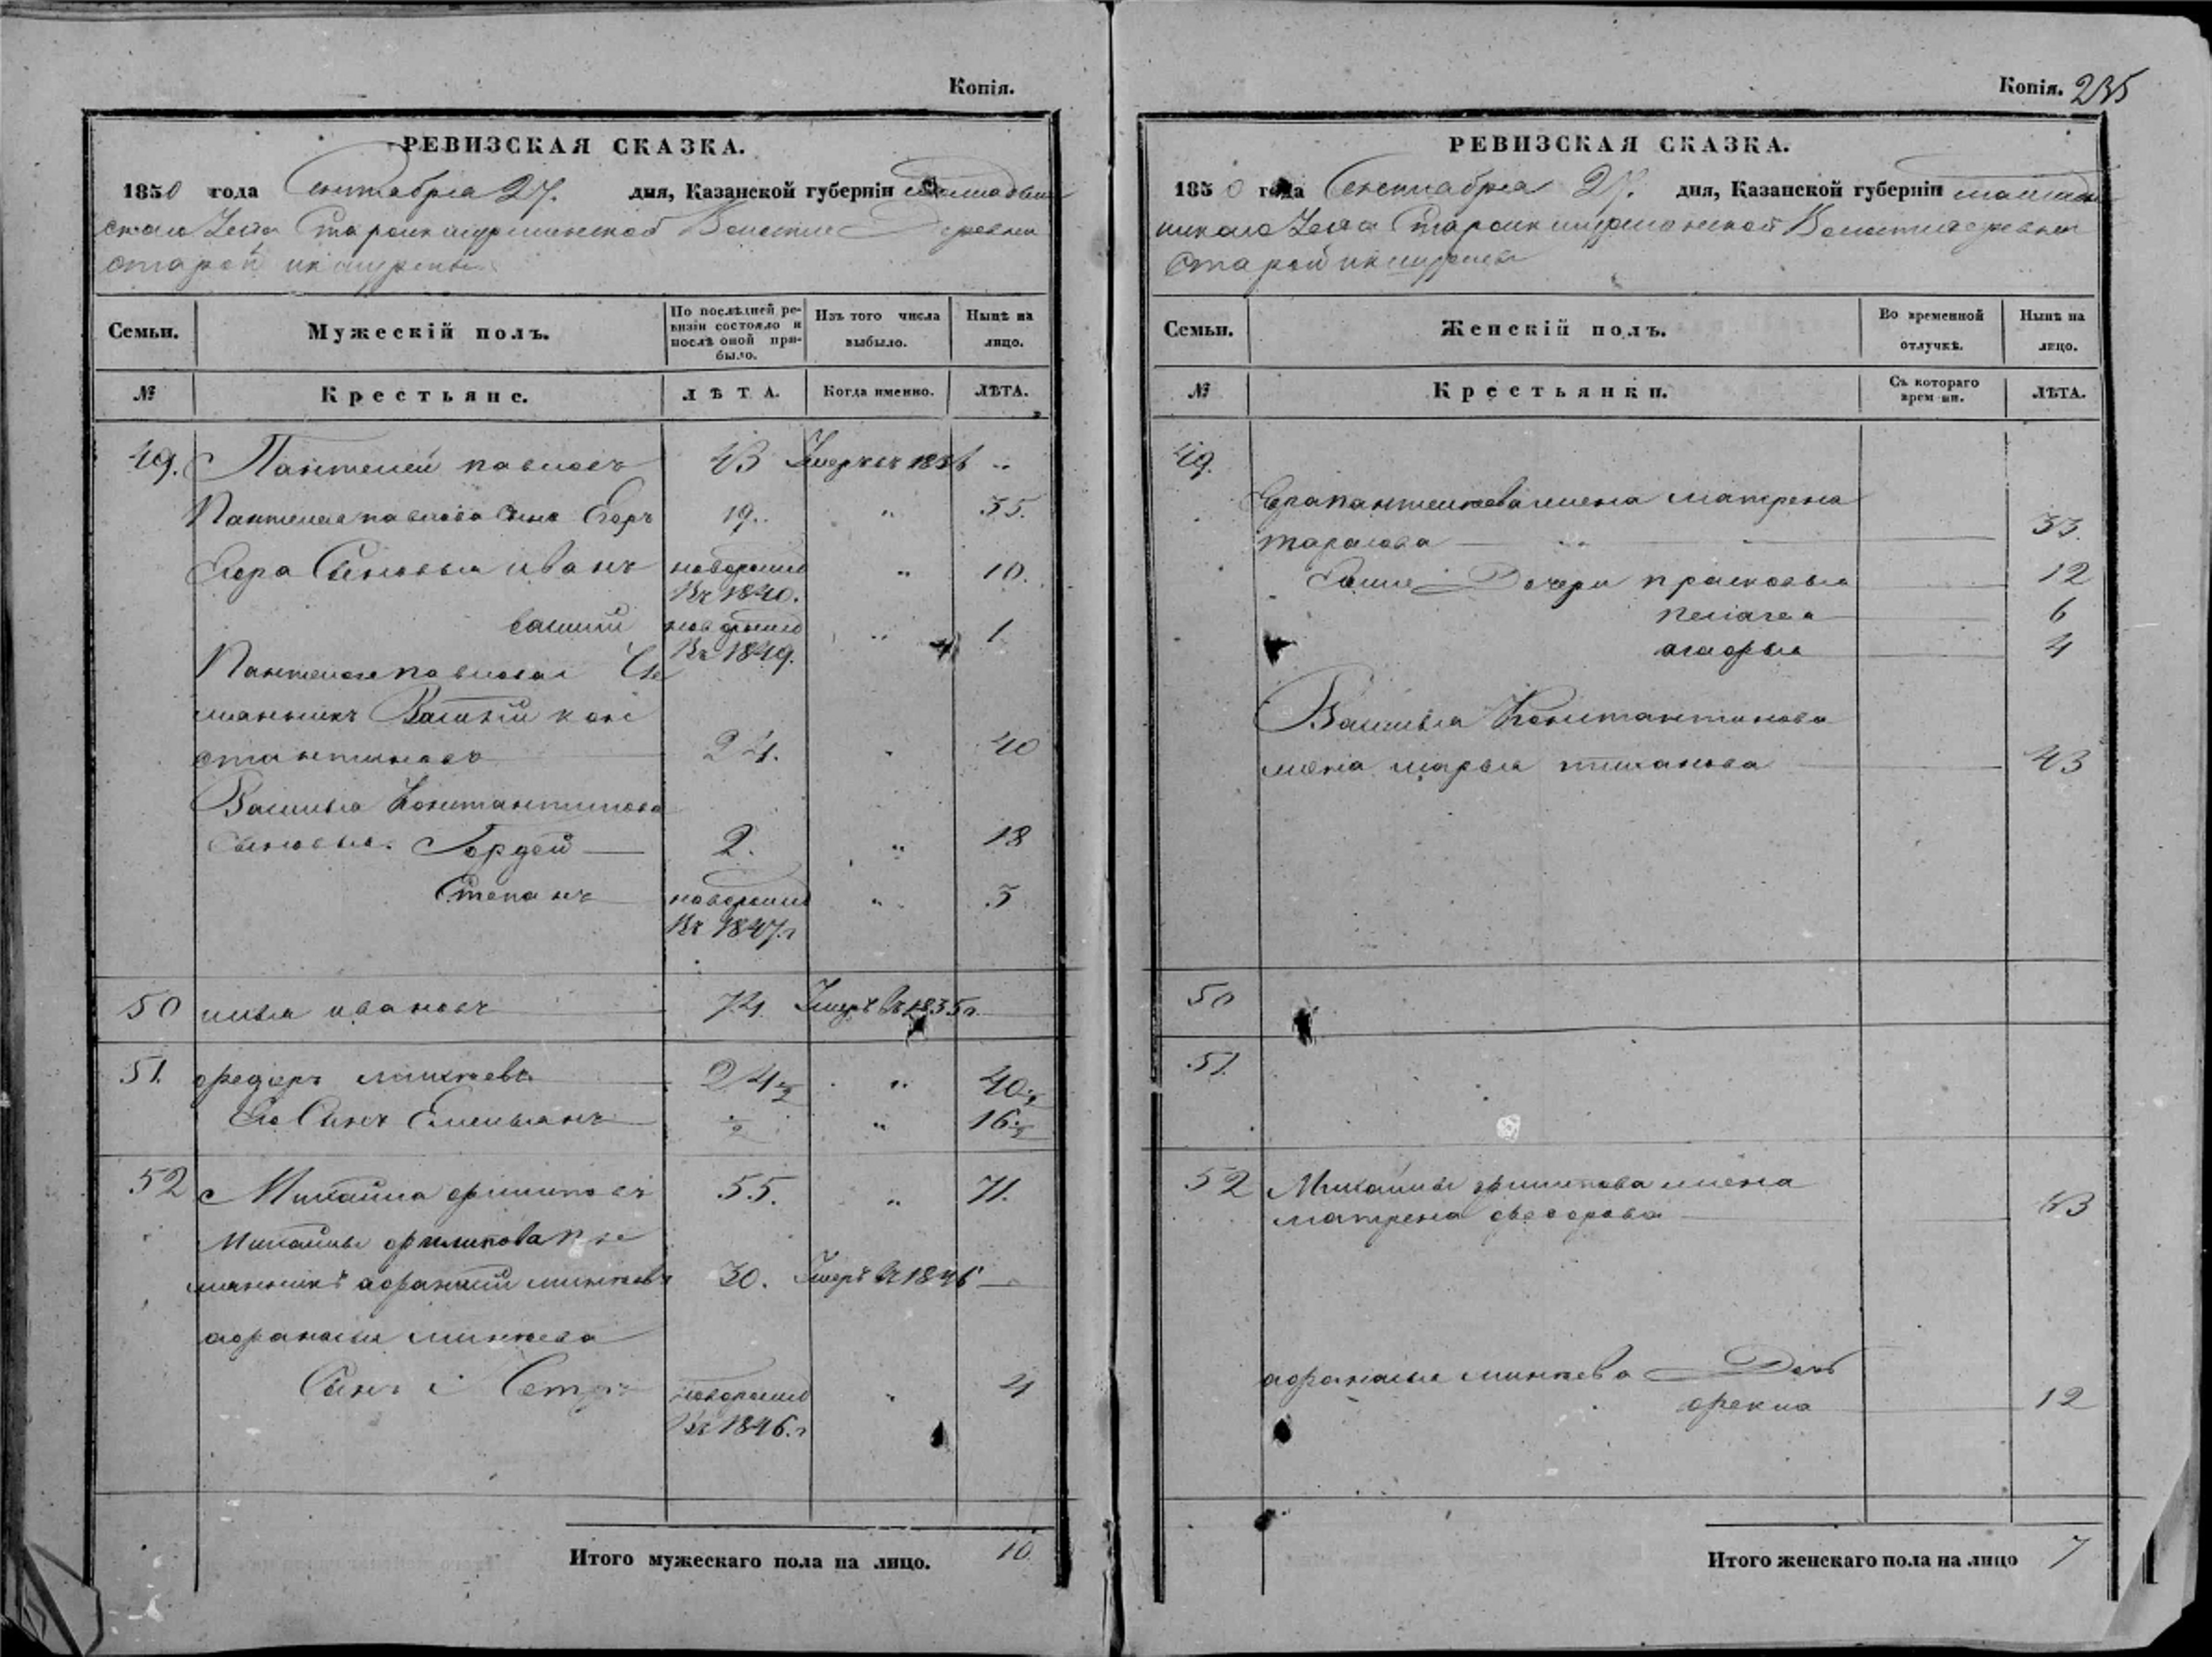 Копія.
РЕВИЗСКАЯ СКАЗКА.
1850 года Сентября 27. дня, Казанской губерніи
Волости Деревни
старой икшурмы
Семьи.
Мужескій полъ.
По послѣдней ревизіи состояло и послѣ оной прибыло.
Изъ того числа выбыло.
Нынѣ на лицо.
№
Крестьяне.
ЛѢТА.
Когда именно.
ЛѢТА.
49. Пантелей павловъ 43 Умеръ въ
Пантелея павлова Сынъ Егоръ 19. " 35.
Егора Сыновья иванъ новорожд " 10.
Въ 1840.
василий новорожд " 1
Въ 1849.
Пантелея павлова
Василий кон
стантиновъ 24. " 40
Василья Константинова
Сыновья. Гордей 2. " 18
Степанъ новорожд " 3
Въ 1847. г
50 илья ивановъ 74. Умеръ Въ 1835 г.
51. федоръ 24 1/2 " 40 1/2
Его Сынъ Емельянъ 1/2 " 16 1/2
52 Михайла филиповъ 55. " 71.
Михайлы филипова пле
мянникъ афанасий 30. Умеръ Въ 1846
афанасья
Сынъ новорожд " 4
Въ 1846. г
Итого мужескаго пола на лицо. 10
Копія. 235
РЕВИЗСКАЯ СКАЗКА.
1850 года Сентября 27. дня, Казанской губерніи
Волости деревни
Старой икшурмы
Семьи.
Женскій полъ.
Во временной отлучкѣ.
Нынѣ на лицо.
№
Крестьянки.
Съ котораго времени.
ЛѢТА.
49.
Егора пантелеева жена матрена
тарасова 33.
Дочери прасковья 12
пелагея 6
агафья 4
Василья Константинова
жена марья 43
50
51.
52 Михайлы филипова жена
матрена федорова 43
афанасья Дочь
фекла 12
Итого женскаго пола на лицо 7